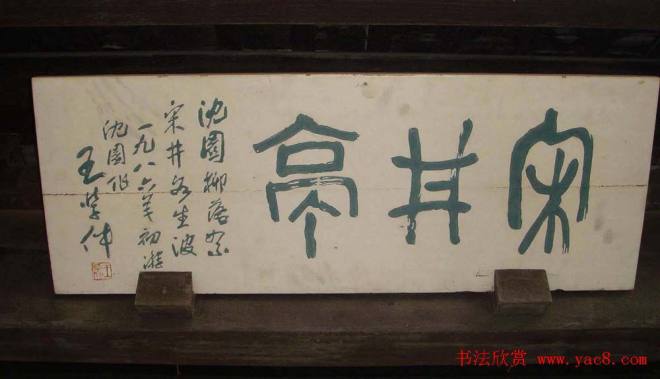 宋井亭
沈園柳落絮
宋井水生波
一九八六年初游
沈園作
王学仲
书法欣赏 www.yac8.com